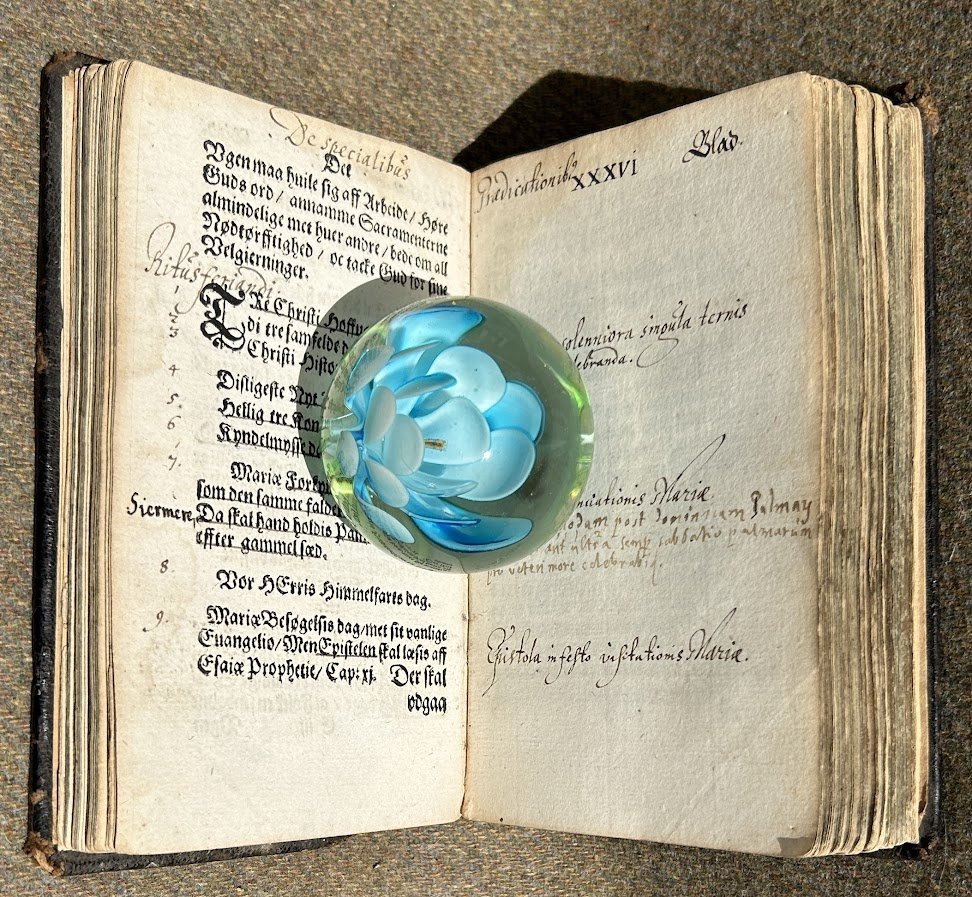 De specialibus
Det
Vgen maa huile sig aff Arbeide / Høre
Guds ord / annamme Sacramenterne
almindelige met huer andre / bede om all
Nødtørfftighed / oc tacke Gud for sine
Velgierninger.
Ritus feriandi.
1
2
3
TRe Christi Høffu
di tre samfelde d
Christi Histo
4
Disligeste Nyt
5.
Hellig tre Kon
6
Kyndelmysse da
7.
Mariæ Forky
som den samme falde
Da skal hand holdis Palm
effter gammel sæd.
8.
Vor HErris Himmelfarts dag.
9.
Mariæ Besøgelsis dag / met sit vanlige
Euangelio / Men Epistelen skal læsis aff
Esaiæ Prophetie / Cap: xj. Der skal
vdgaa
Prædicationibus XXXVI Blad.
solenniora singula ternis
ebranda.
nuciationis Mariæ
post dominicam Palmar
aut ultra semp sabbatio palmarum
pro veteri more celebratur.
Epistola in festo visitationis Mariæ.